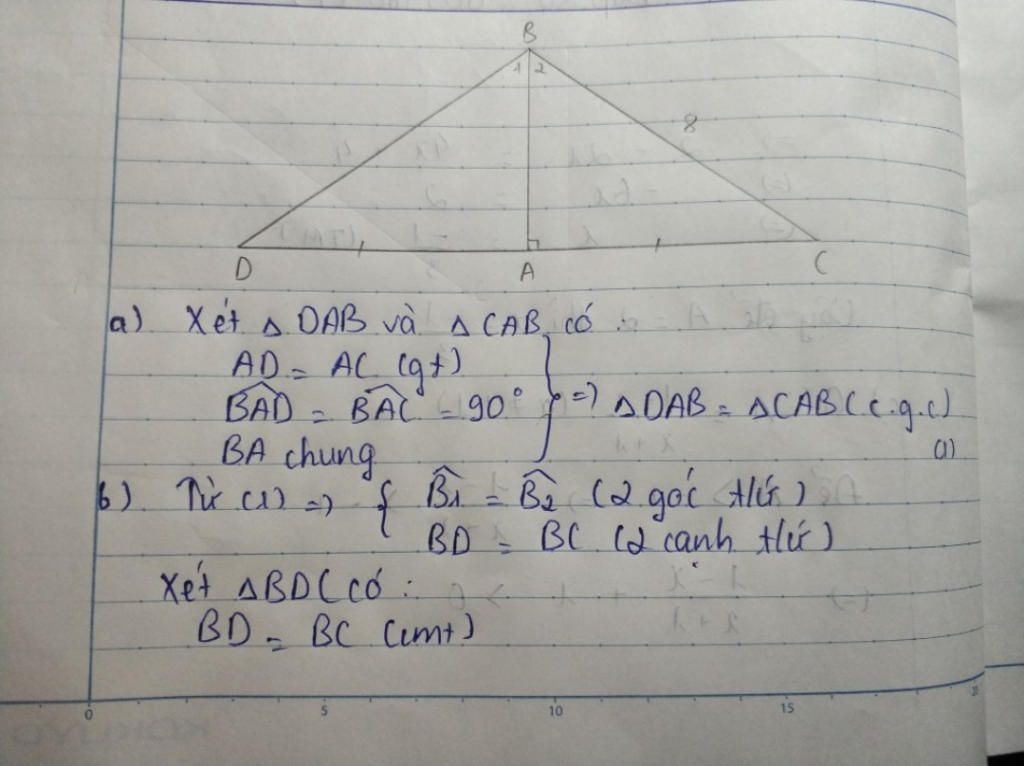 B
1 2
8
D A C
a) Xét △ DAB và △ CAB có :
AD = AC (gt)
BAD̂ = BAĈ = 90° => △DAB = △CAB (c.g.c)
BA chung (1)
b) Từ (1) => { B̂1 = B̂2 (2 góc t/ứ)
BD = BC (2 cạnh t/ứ)
Xét △BDC có :
BD = BC (cmt)
0 5 10 15